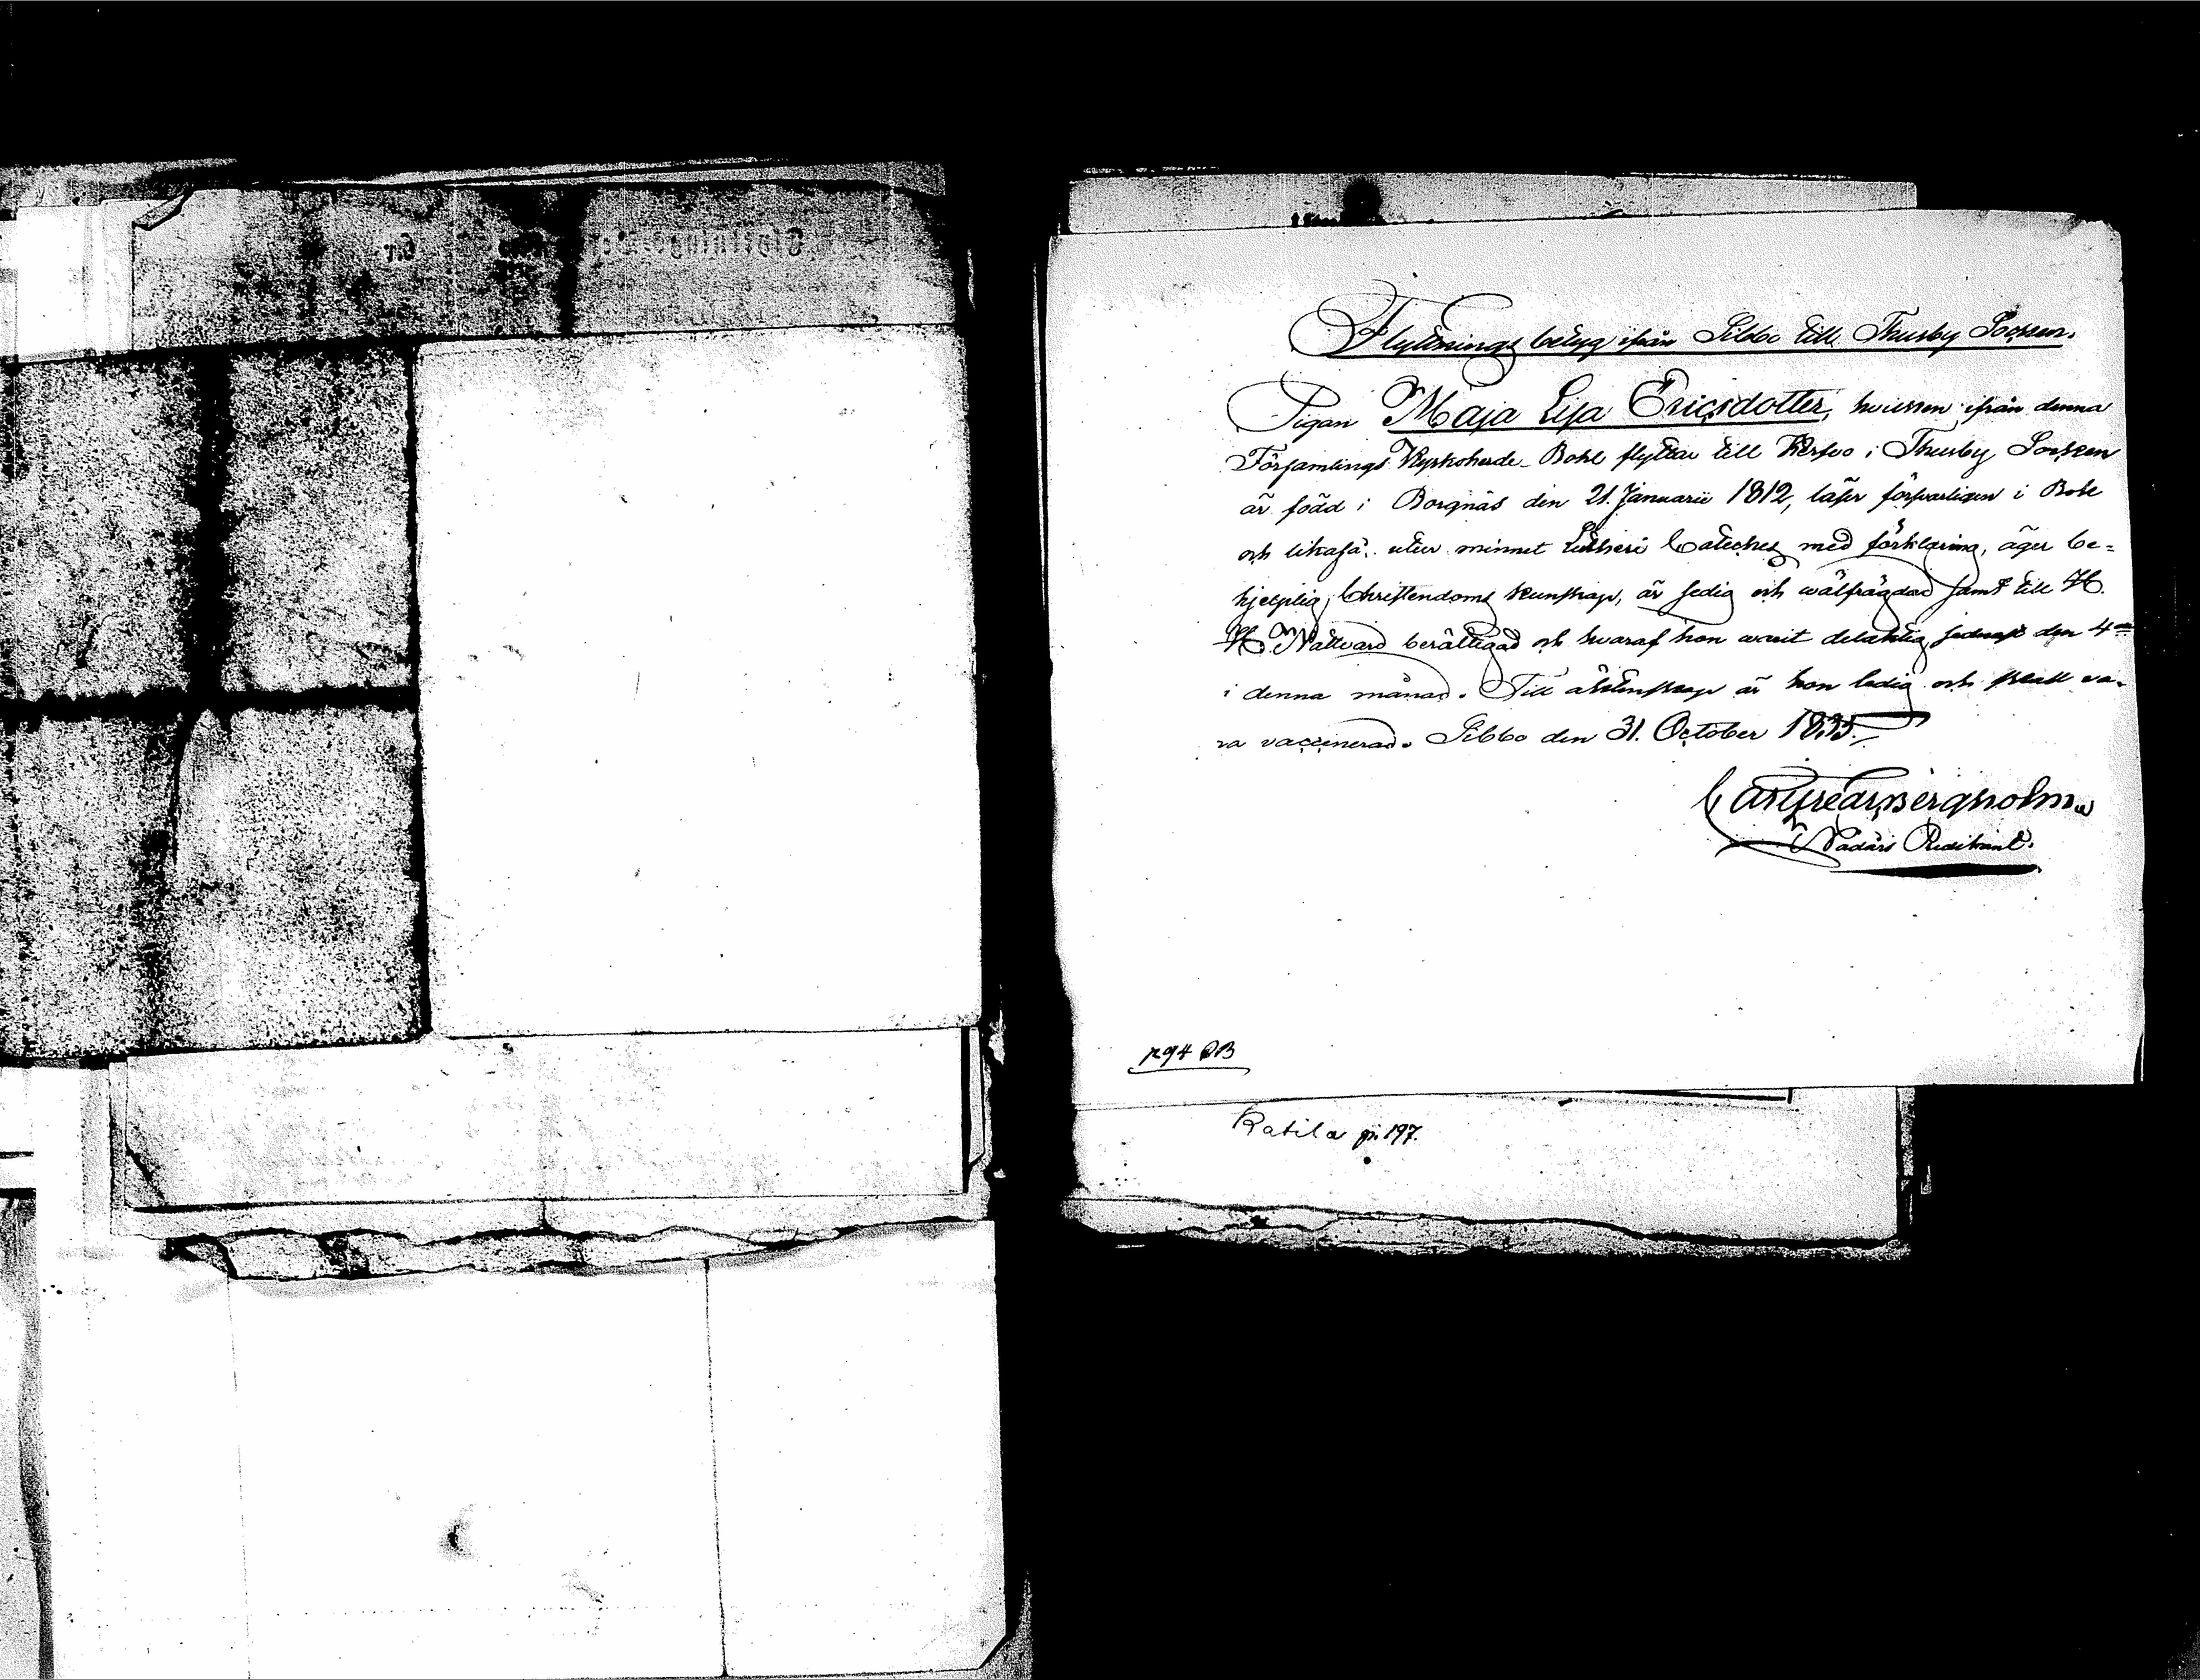 Flyttnings betyg ifrån Sibbo till Thusby Socken.
Pigan Maja Lisa Ericsdotter, hvilken ifrån denna
Församlings Kyrkoherde-Bohl flyttar till Kerfvo i Thusby Socken
är född i Borgnäs den 21. Januarii 1812, läser försvarligen i Bok
och likaså utur minnet Lutheri Cateches med förklaring, äger be=
hjelplig Christendoms kunskap, är sedig och wälfrägdad samt till H.
H. Nattvard berättigad och hvaraf hon warit delaktig sednast den 4de
i denna månad. Till äktenskap är hon ledig och skall va-
ra vaccinerad. Sibbo den 31. October 1835.
Carl Fredr Bergholm
Nådårs Predikant.
p 94 DB
Katila p. 197.